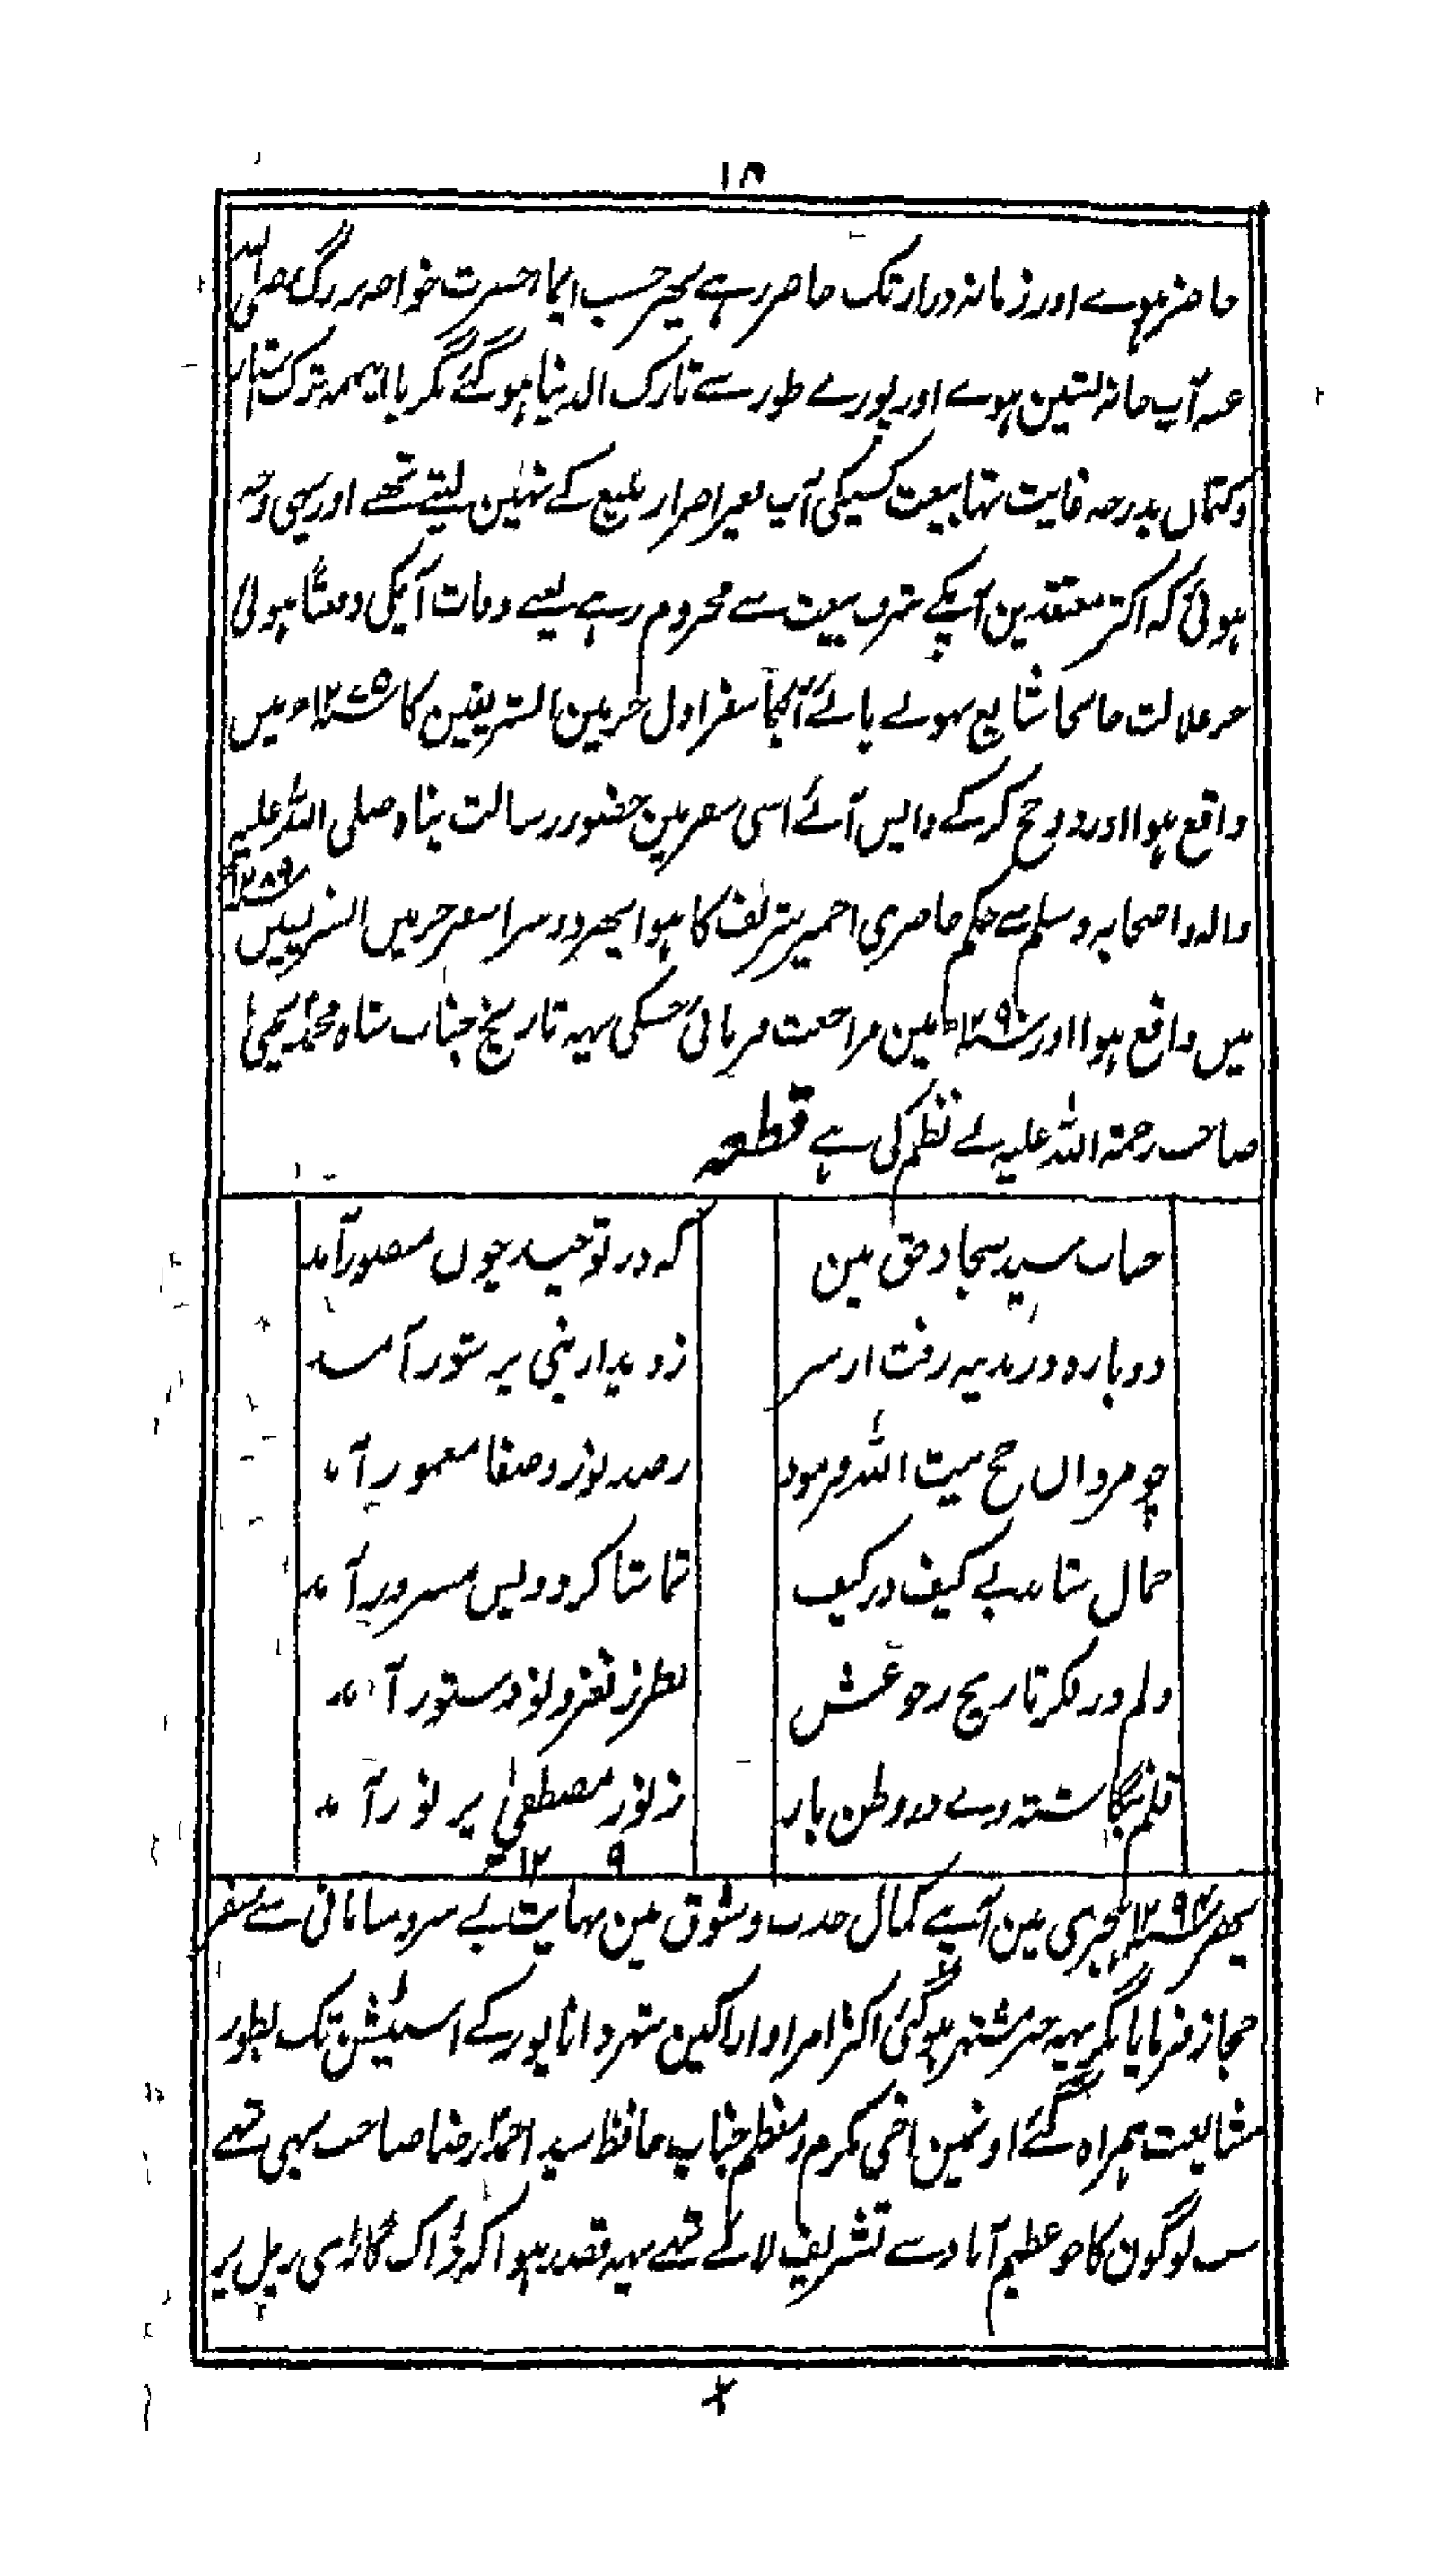 ۱۵
حاضر ہوے اور زمانہ دراز تک حاضر رہے پھر حسب ایما حضرت خواجہ بزرگ رضی اللہ
عنہ آپ خانہ نشین ہوے اور پورے طور سے تارک الدنیا ہو گئے مگر با اینہمہ ترک
و کتمان بدرجہ غایت تہا بیعت کسیکی آپ بغیر اصرار بلیغ کے نہین لیتے تھے اور یہی وجہ
ہوئی کہ اکثر معتقدین آپکے شرف بیعت سے محروم رہے یعنے وفات آپکی دفعتًا ہوئی
خبر علالت جابجا شایع نہونے پائے آپکا سفر اول حرمین الشریفین کا ۱۲۷۵ھ میں
واقع ہوا اور دو حج کر کے واپس آئے اسی سفر مین حضور رسالت پناہ صلی اللہ علیہ
واله واصحابہ وسلم سے حکم حاضری اجمیر شریف کا ہوا پھر دوسرا سفر حرمیں الشریفیں ۱۲۸۹
میں واقع ہوا اور ۱۲۹۰ھ مین مراجعت فرمائی جسکی یہہ تاریخ جناب شاہ محمد یحییٰ
صاحب رحمۃ اللہ علیہ نے نظم کی ہے قطعہ
جناب سید سجاد حق بین
کہ در توحید چوں منصور آمد
دوبارہ در مدینہ رفت از سر
ز دیدار نبی پر شور آمد
چو مرداں حج بیت اللہ فرمود
ز صد نور و صفا معمور آمد
جمال شاہد بے کیف در کیف
تماشا کرد و پس مسرور آمد
دلم در فکر تاریخ رجوعش
بطرز نغز و نو دستور آمد
قلم بنگاشتہ وے در وطن باز
ز نور مصطفیٰ پر نور آمد
۱۲ ۹
پھر ۱۲۹۴ ہجری مین آپنے کمال جذب و شوق مین نہایت بے سروسامانی سے سفر
حجاز فرمایا مگر یہہ خبر مشتہر ہو گئی اکثر امرا و اراکین شہر داناپور کے اسٹیشن تک بطور
مشایعت ہمراہ گئے اونمین اخی مکرم و معظم جناب حافظ سید احمد رضا صاحب بہی تہے
سب لوگون کا جو عظیم آباد سے تشریف لائے تہے یہہ قصد ہوا کہ ڈاک گاڑی ریل پر